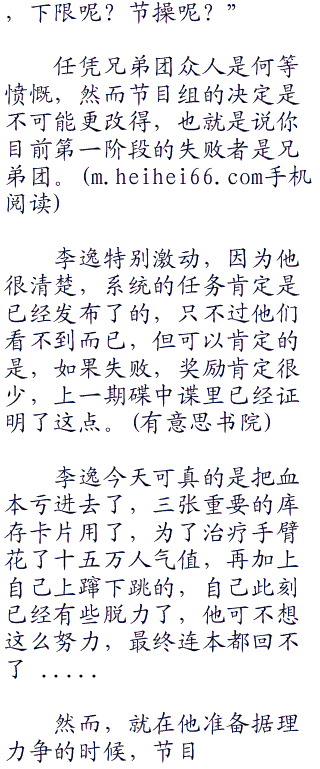 ，下限呢？节操呢？”
任凭兄弟团众人是何等
愤慨，然而节目组的决定是
不可能更改得，也就是说你
目前第一阶段的失败者是兄
弟团。(m.heihei66.com手机
阅读)
李逸特别激动，因为他
很清楚，系统的任务肯定是
已经发布了的，只不过他们
看不到而已，但可以肯定的
是，如果失败，奖励肯定很
少，上一期碟中谍里已经证
明了这点。(有意思书院)
李逸今天可真的是把血
本亏进去了，三张重要的库
存卡片用了，为了治疗手臂
花了十五万人气值，再加上
自己上蹿下跳的，自己此刻
已经有些脱力了，他可不想
这么努力，最终连本都回不
了 .....
然而，就在他准备据理
力争的时候，节目